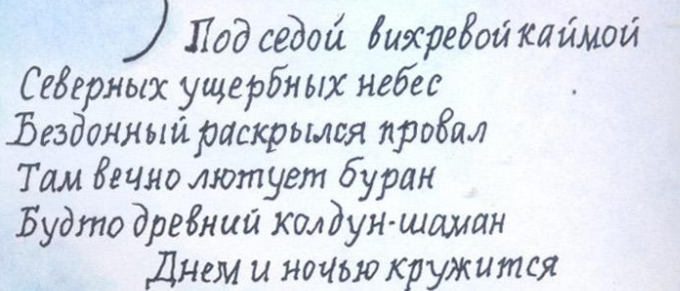 Под седой вихревой каймой
Северных ущербных небес
Бездонный раскрылся провал
Там вечно лютует буран
Будто древний колдун-шаман
Днем и ночью кружится